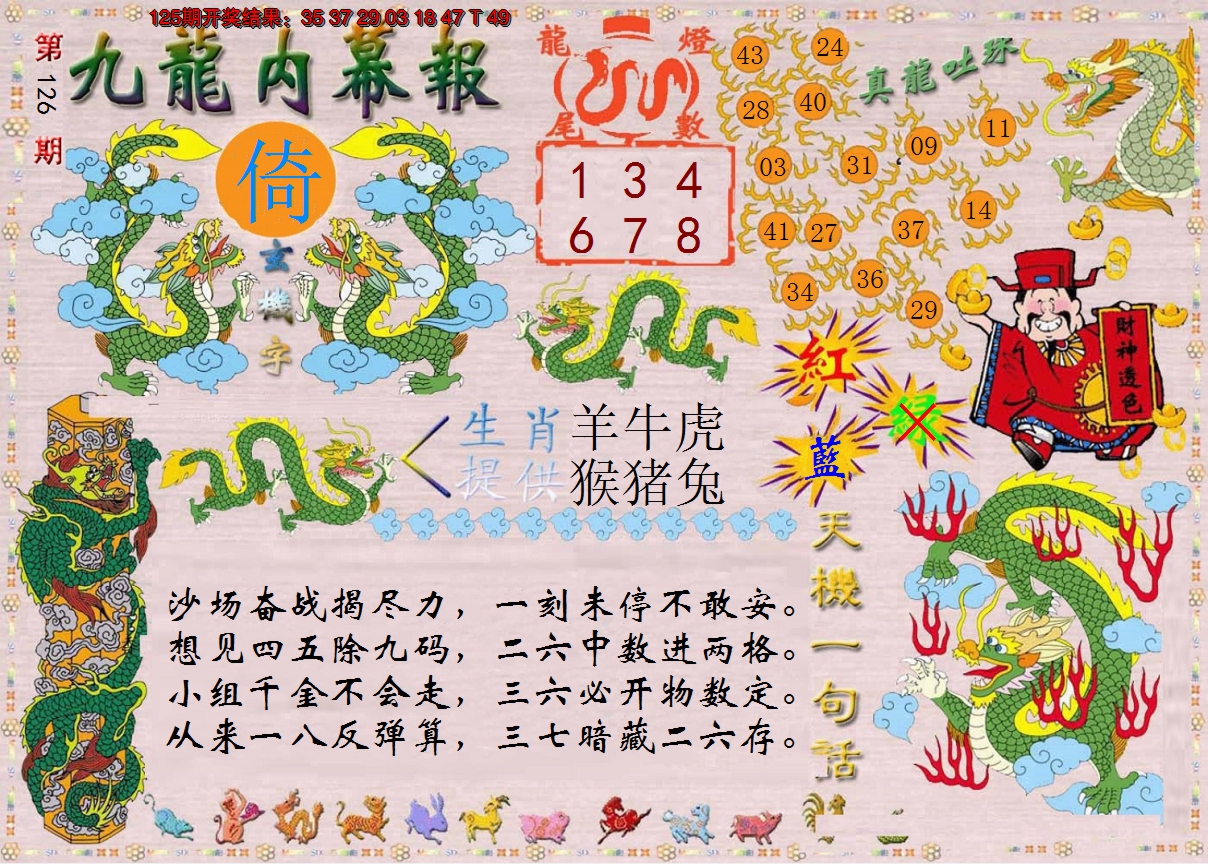 125期开奖结果：35 37 29 03 18 47 T 49
第126期
九龍内幕報
倚
玄機字
龍燈
尾數
1 3 4
6 7 8
真龍吐珠
43
24
28
40
03
31
09
11
41
27
37
14
34
36
29
財神透色
紅
绿
藍
生肖提供
羊牛虎
猴猪兔
天機一句話
沙场奋战揭尽力，一刻未停不敢安。
想见四五除九码，二六中数进两格。
小组千金不会走，三六必开物数定。
从来一八反弹算，三七暗藏二六存。